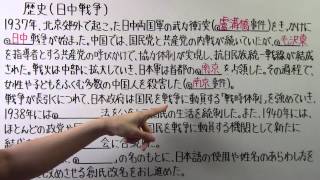 歴史(日中戦争)
1937年、北京郊外で起こった日中両国軍の武力衝突(@盧溝橋事件)をきっかけに
(@日中戦争が始まった。中国では、国民党と共産党の内戦が続いていたが、@毛沢東
を指導者とする共産党の呼びかけで、協力体制がつくられ、抗日民族統一戦線が結成
された。戦火は中部に拡大していき、日本軍は首都の@南京を占領した。その過程で、
女性や子どもをふくむ多数の中国人を殺害した(@南京事件)。
戦争が長引くにつれて、日本政府は国民を戦争に動員する「戦時体制」を強めていき、
1938年には@ 法を 国民の生活を統制した。また、1940年には、
ほとんどの政党や 国民を戦争に動員する機関として新たに
結 会に
の名のもとに、日本語の使用や姓名のあらわし方を
める創氏改名をおし進めた。